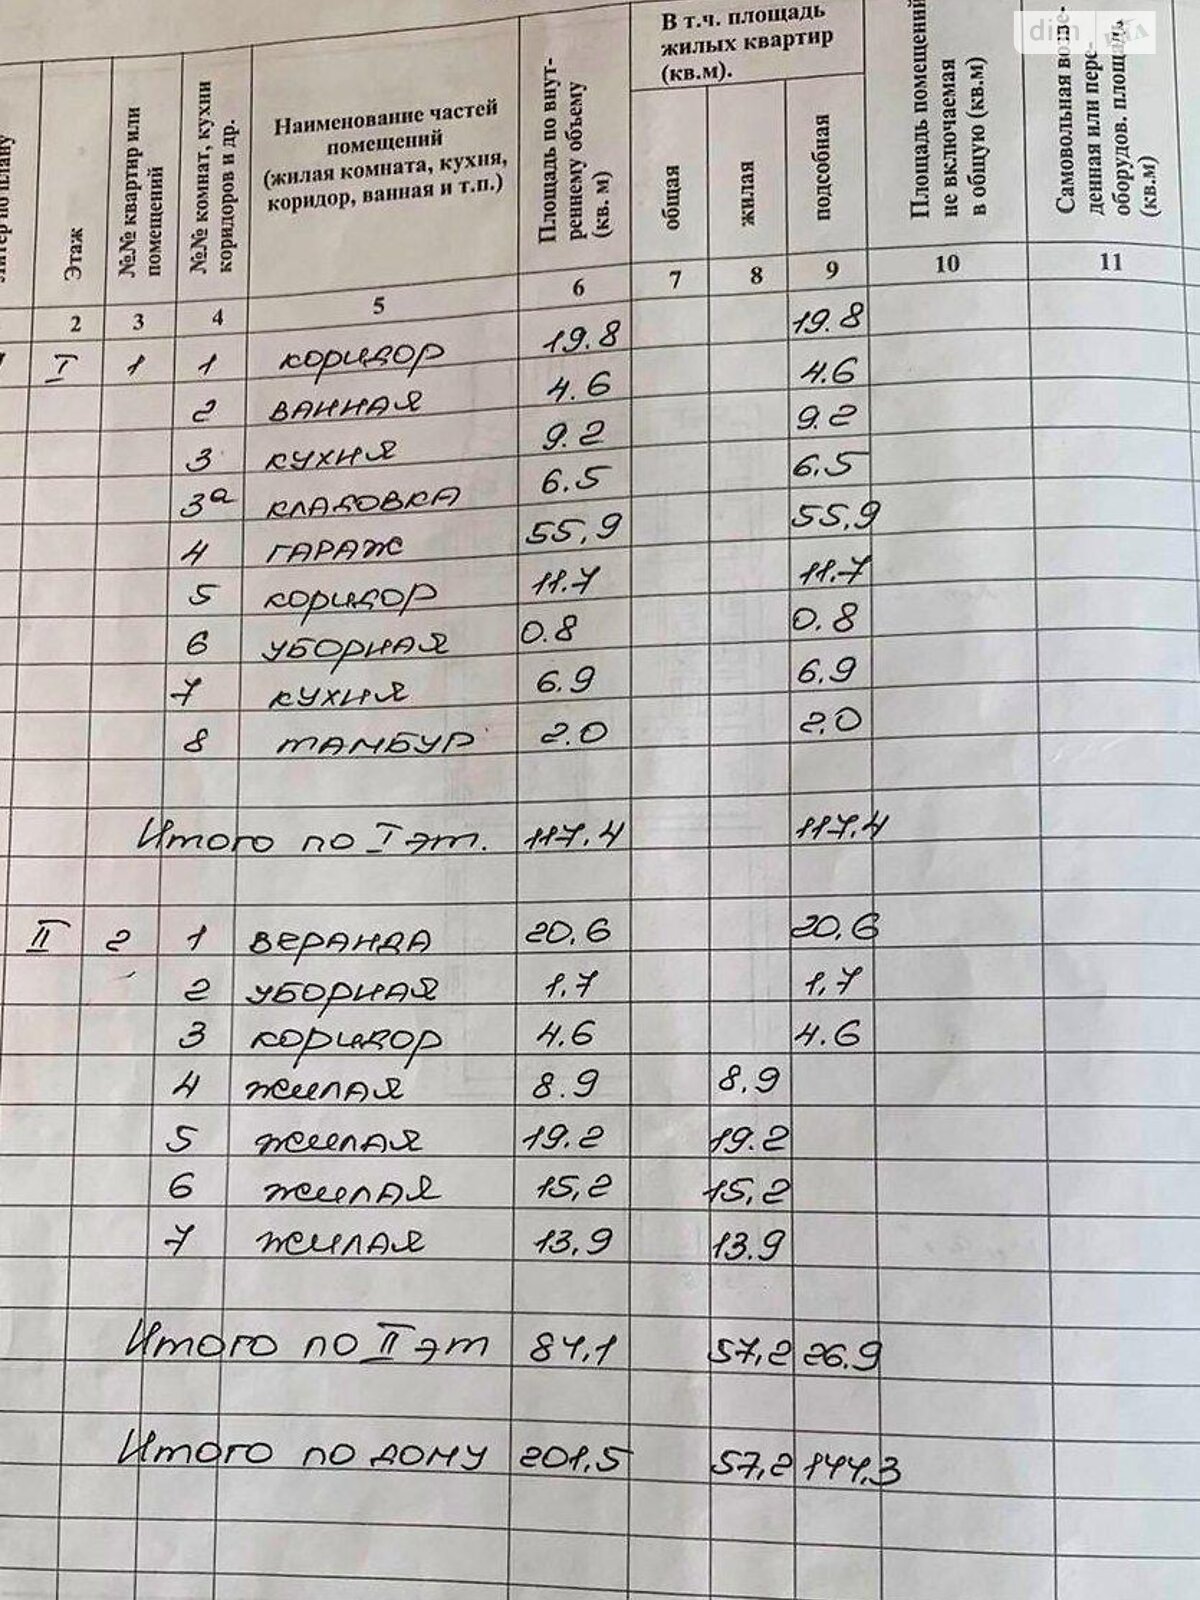 dim РІА
В т.ч. площадь жилых квартир (кв.м).
Литер по плану
Этаж
№№ квартир или помещений
№№ комнат, кухни коридоров и др.
Наименование частей помещений (жилая комната, кухня, коридор, ванная и т.п.)
Площадь по внут-реннему объему (кв. м)
общая
жилая
подсобная
Площадь помещений не включаемая в общую (кв.м)
Самовольная возве-денная или пере-оборудов. площадь (кв.м)
2 3 4 5 6 7 8 9 10 11
I 1 1 коридор 19.8 19.8
2 ванная 4.6 4.6
3 кухня 9.2 9.2
3а кладовка 6.5 6.5
4 гараж 55,9 55,9
5 коридор 11.7 11.7
6 уборная 0.8 0.8
7 кухня 6.9 6.9
8 тамбур 2.0 2.0
Итого по I эт. 117.4 117.4
II 2 1 веранда 20,6 20,6
2 уборная 1,7 1,7
3 коридор 4.6 4.6
4 жилая 8.9 8.9
5 жилая 19.2 19.2
6 жилая 15,2 15,2
7 жилая 13,9 13.9
Итого по II эт 84,1 57,2 26.9
Итого по дому 201,5 57,2 144,3